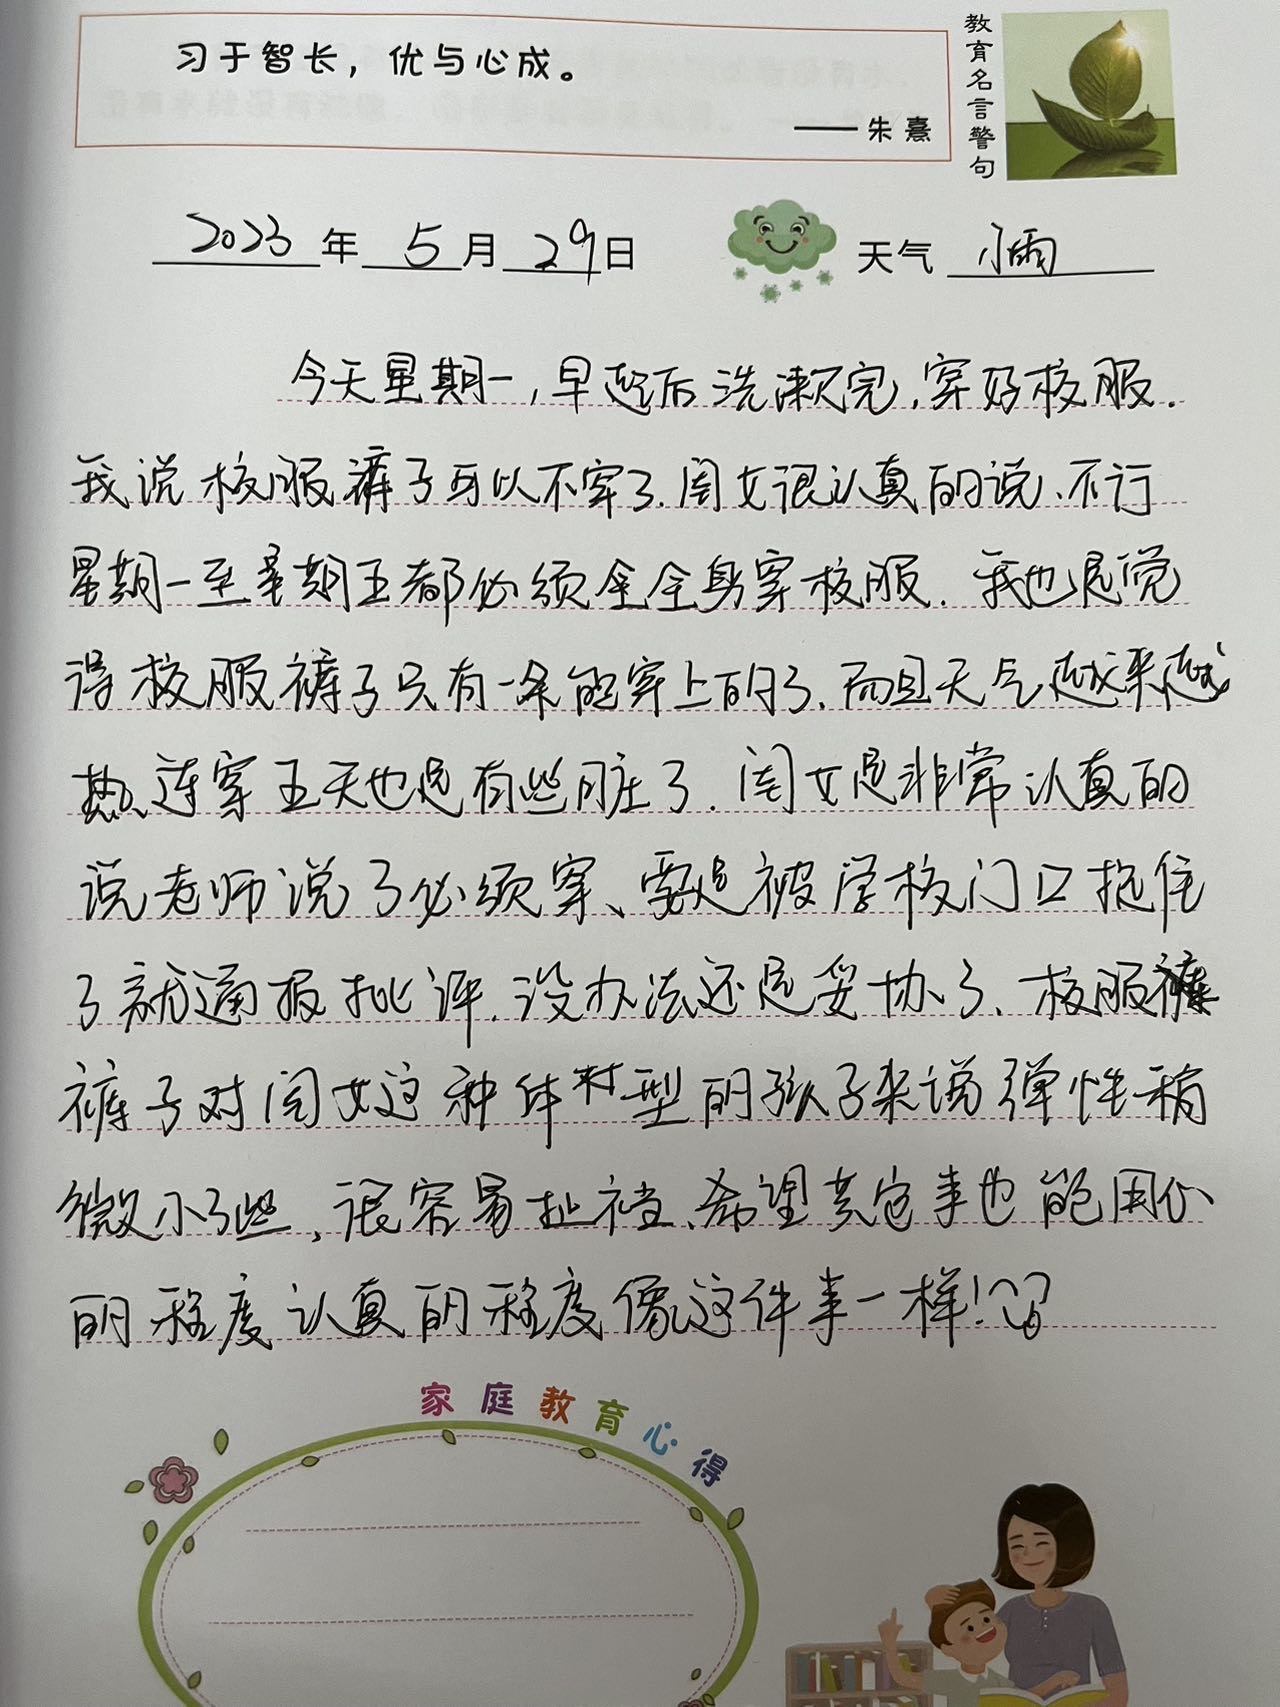 习于智长，优与心成。
——朱熹
教育名言警句
2023年 5月 29日 天气 小雨
今天星期一，早起后洗漱完，穿好校服.
我说校服裤子可以不穿了.闺女很认真的说、不行
星期一至星期五都必须全全身穿校服. 我也是觉
得校服裤子只有一条能穿上的了.而且天气越来越
热、连穿五天也是有些脏了.闺女是非常认真的
说老师说了必须穿、要是被学校门口抱住
了就通报批评.没办法还是妥协了、校服裤
裤子对闺女这种体型的孩子来说弹性稍
微小了些，很容易扯裆、希望其它事也能用心
的程度认真的程度像这件事一样！
家庭教育心得